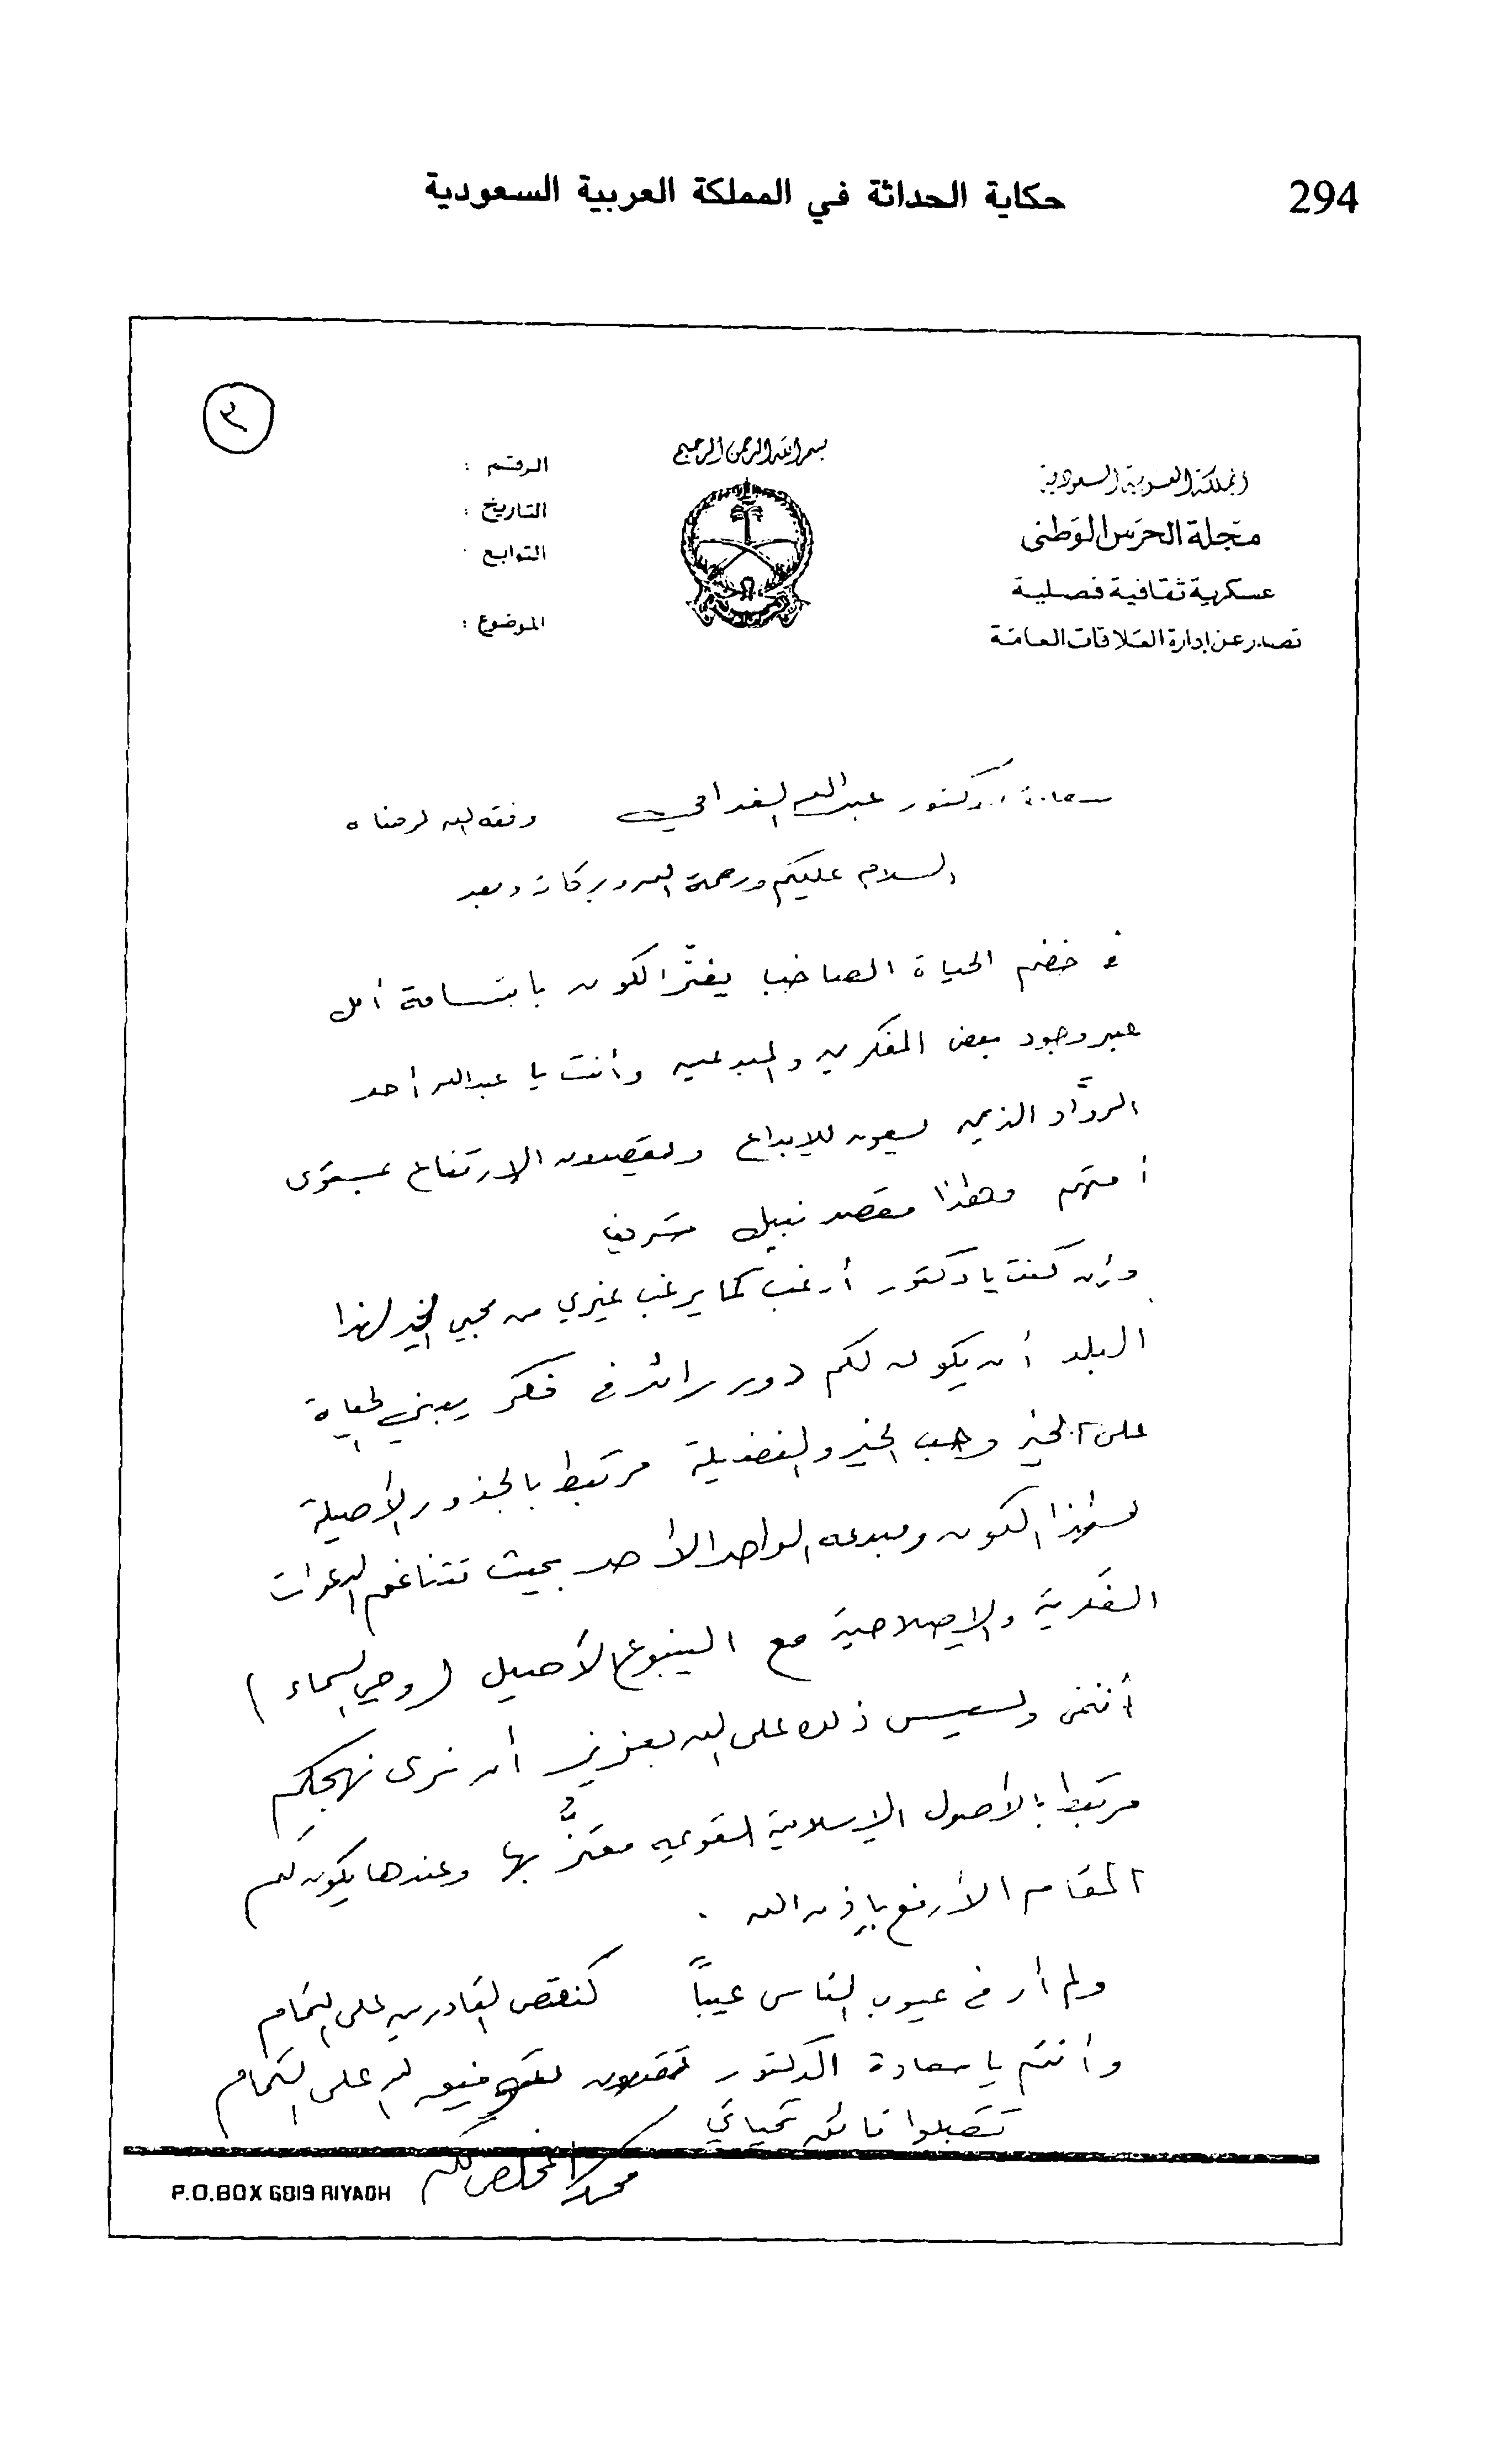 294
حكاية الحداثة في المملكة العربية السعودية
٣
بسم الله الرحمن الرحيم
المملكة العربية السعودية
مجلة الحرس الوطني
عسكرية ثقافية فصلية
تصدر عن إدارة العلاقات العامة
الرقم :
التاريخ :
التوابع :
الموضوع :
سعادة الدكتور عبدالله الغذامي وفقه الله لرضاه
السلام عليكم ورحمة الله وبركاته وبعد
في خضم الحياة الصاخب يفترّ الكون بابتسامة أمل
عبر وجود بعض المفكرين والمبدعين وأنت يا عبدالله أحد
الروّاد الذين يسعون للإبداع ويقصدون الارتفاع بمستوى
أمتهم وهذا مقصد نبيل شريف
وإن كنت يا دكتور أرغب كما يرغب غيري من محبي الخير لهذا
البلد أن يكون لكم دور رائد في فكر يبني الحياة
على الخير وحب الخير والفضيلة مرتبط بالجذور الأصيلة
لهذا الكون ومبدعه الواحد الأحد بحيث تتناغم الدعوات
الفكرية والإصلاحية مع الينبوع الأصيل (وحي السماء)
أتمنى وليس ذلك على الله بعزيز أن نرى نهجكم
مرتبط بالأصول الإسلامية القويمه معتزٌّ بها وعندها يكون لكم
المقام الأرفع بإذن الله .
ولم أر في عيوب الناس عيباً كنقص القادرين على التمام
وأنتم يا سعادة الدكتور تقدرون بتوفيق الله على التمام
تقبلوا فائق تحياتي
المخلص لكم
P.O.BOX 6819 RIYADH